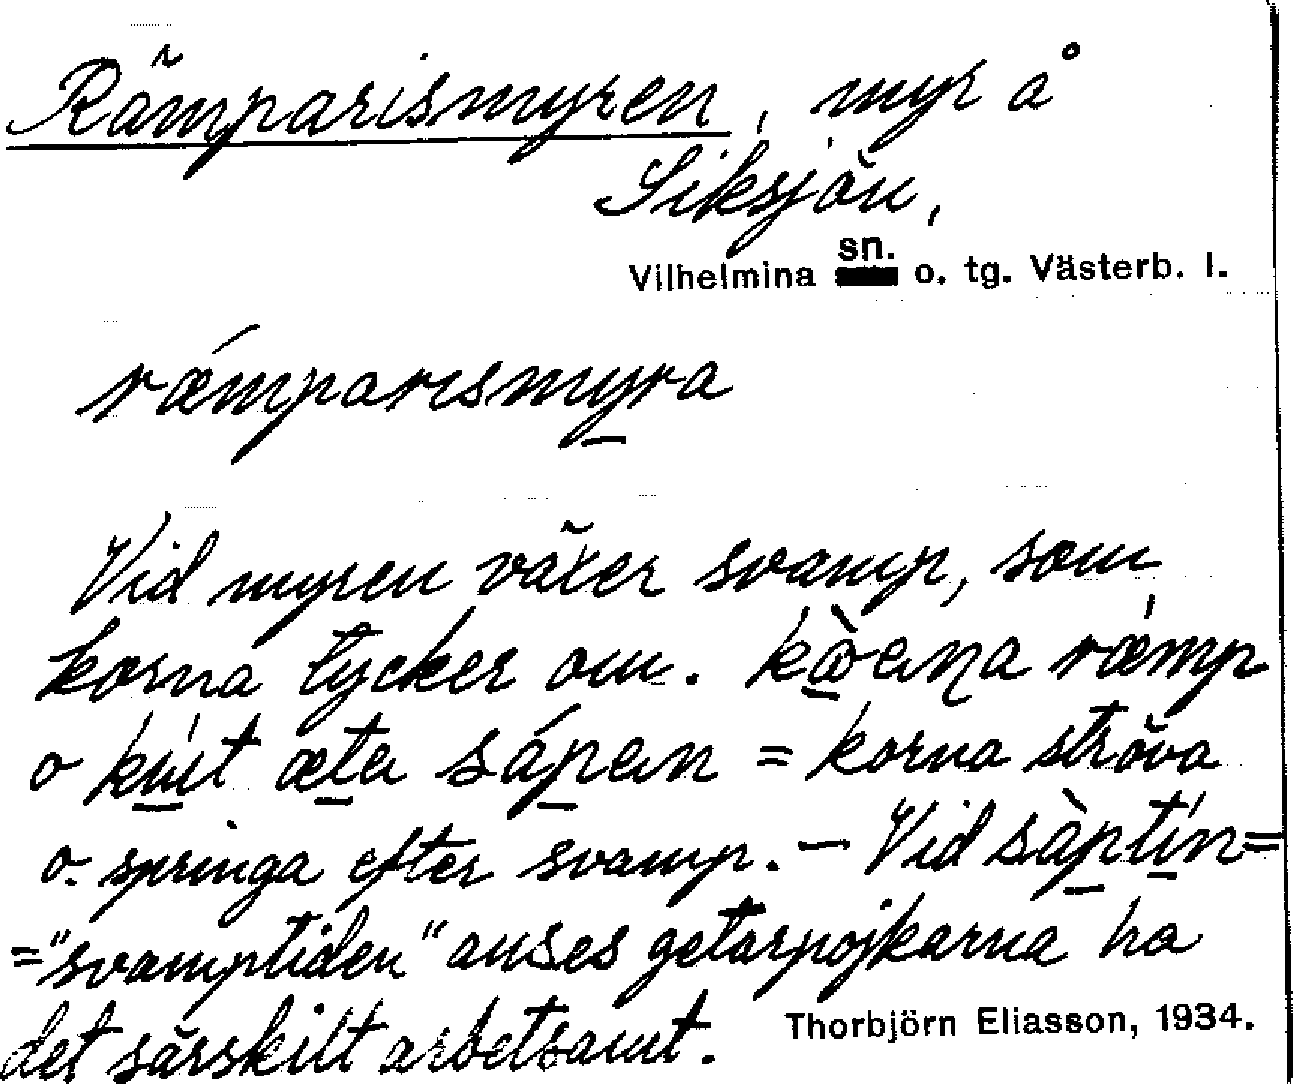 Rämparismyren, myr å
Siksjön,
Vilhelmina sn. o. tg. Västerb. l.
rǽmparismyra
Vid myren växer svamp, som
korna tycker om. rǽmp
o æta sápan = korna ströva
o. springa efter svamp. — Vid sàptín=
="svamptiden" anses getarpojkarna ha
det särskilt arbetsamt.
Thorbjörn Eliasson, 1934.